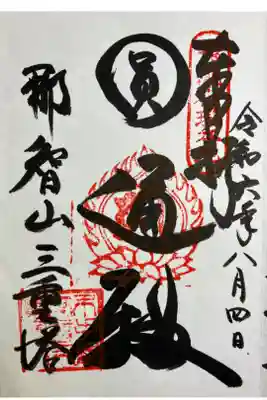 令和六年八月四日
圓通殿
那智山三重塔